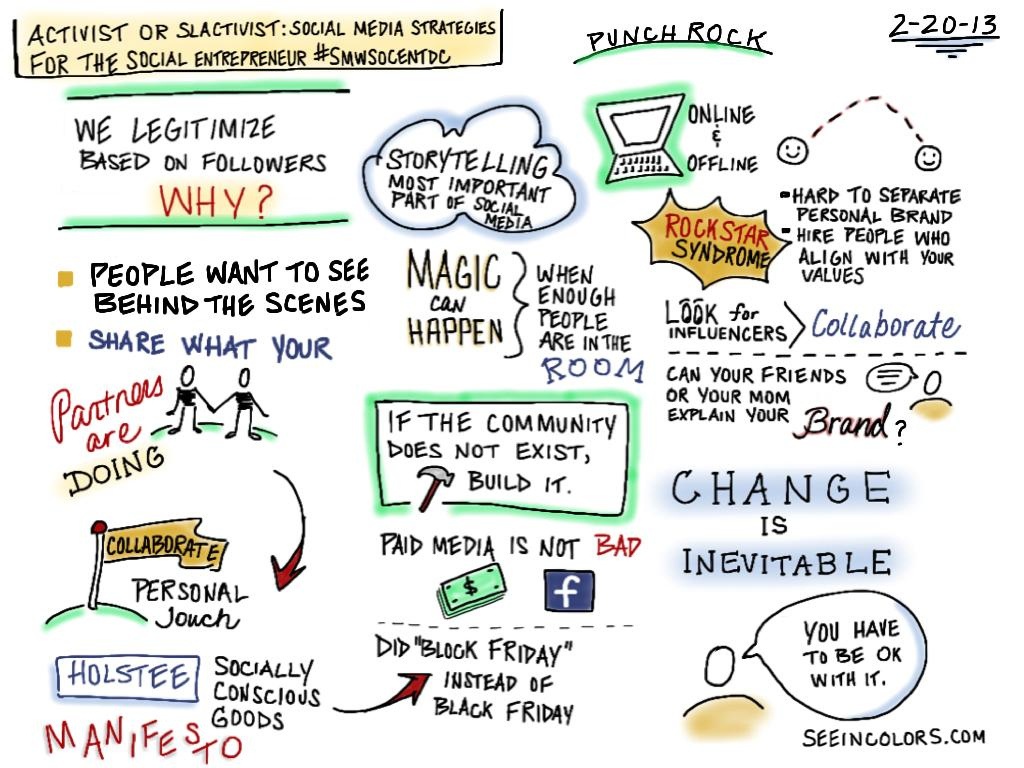 ACTIVIST OR SLACTIVIST: SOCIAL MEDIA STRATEGIES
FOR THE SOCIAL ENTREPRENEUR #SMWSOCENTDC
PUNCH ROCK
2-20-13
WE LEGITIMIZE
BASED ON FOLLOWERS
WHY?
PEOPLE WANT TO SEE
BEHIND THE SCENES
SHARE WHAT YOUR
Partners
are
DOING
COLLABORATE
PERSONAL
Touch
HOLSTEE
MANIFESTO
SOCIALLY
CONSCIOUS
GOODS
STORYTELLING
MOST IMPORTANT
PART OF SOCIAL
MEDIA
MAGIC
CAN
HAPPEN
WHEN
ENOUGH
PEOPLE
ARE IN THE
ROOM
IF THE COMMUNITY
DOES NOT EXIST,
BUILD IT.
PAID MEDIA IS NOT BAD
$
f
DID "BLOCK FRIDAY"
INSTEAD OF
BLACK FRIDAY
ONLINE
&
OFFLINE
ROCKSTAR
SYNDROME
-HARD TO SEPARATE
PERSONAL BRAND
-HIRE PEOPLE WHO
ALIGN WITH YOUR
VALUES
LOOK for
INFLUENCERS
Collaborate
CAN YOUR FRIENDS
OR YOUR MOM
EXPLAIN YOUR
Brand?
CHANGE
IS
INEVITABLE
YOU HAVE
TO BE OK
WITH IT.
SEEINCOLORS.COM